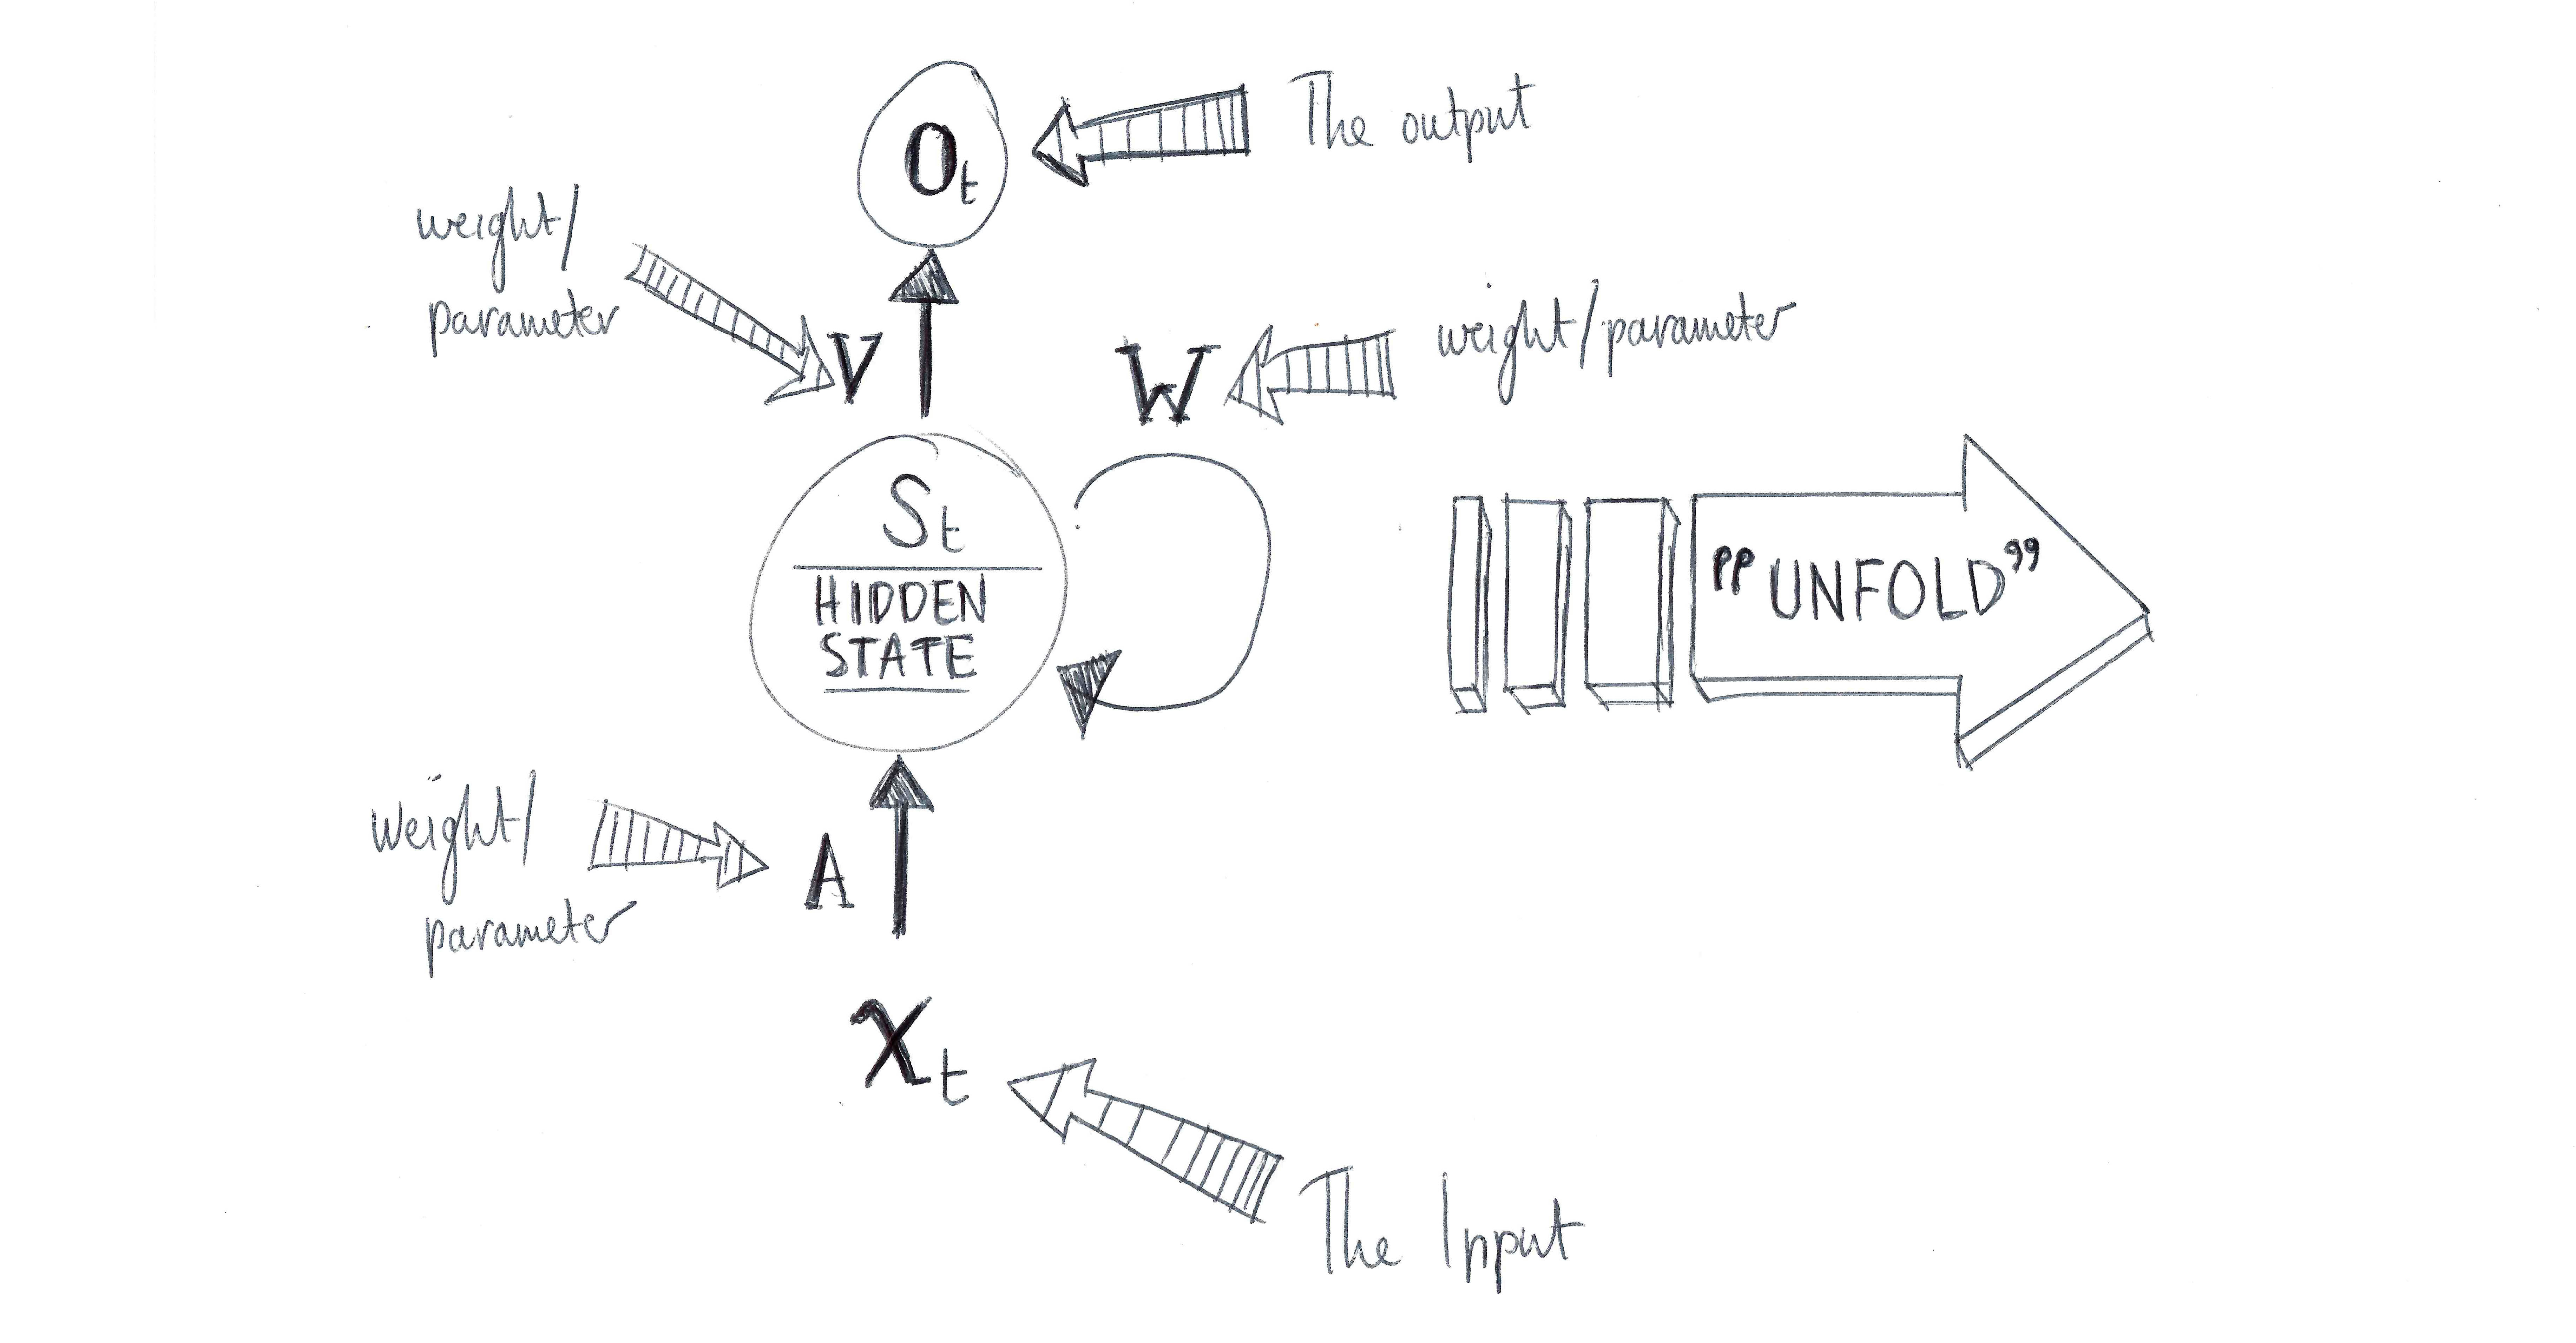 Ot
The output
weight/
parameter
V
W
weight/parameter
St
HIDDEN
STATE
"UNFOLD"
Weight/
parameter
A
Xt
The Input